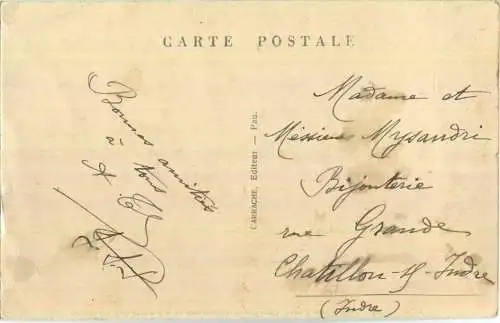 CARTE POSTALE
Bonnes amitiés
à tous
CARRACHE, Editeur — Pau.
Madame et
Messieurs Mysandri
Bijouterie
rue Grande
Chatillon-s/-Indre
(Indre)